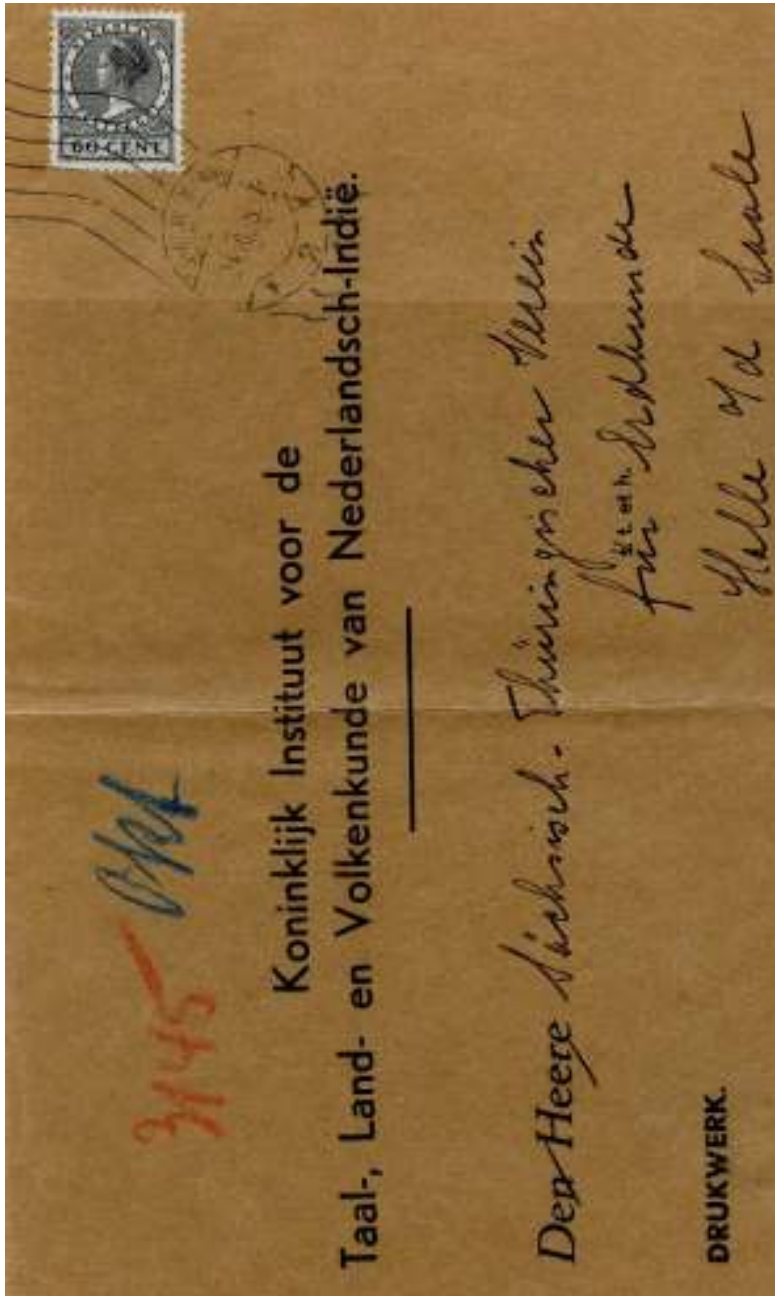 NEDERLAND
60 CENT
3/45
Koninklijk Instituut voor de
Taal-, Land- en Volkenkunde van Nederlandsch-Indië.
Den Heere Sächsisch-Thüringischer Verein
für Erdkunde
t. et h.
Halle a/d Saale
DRUKWERK.